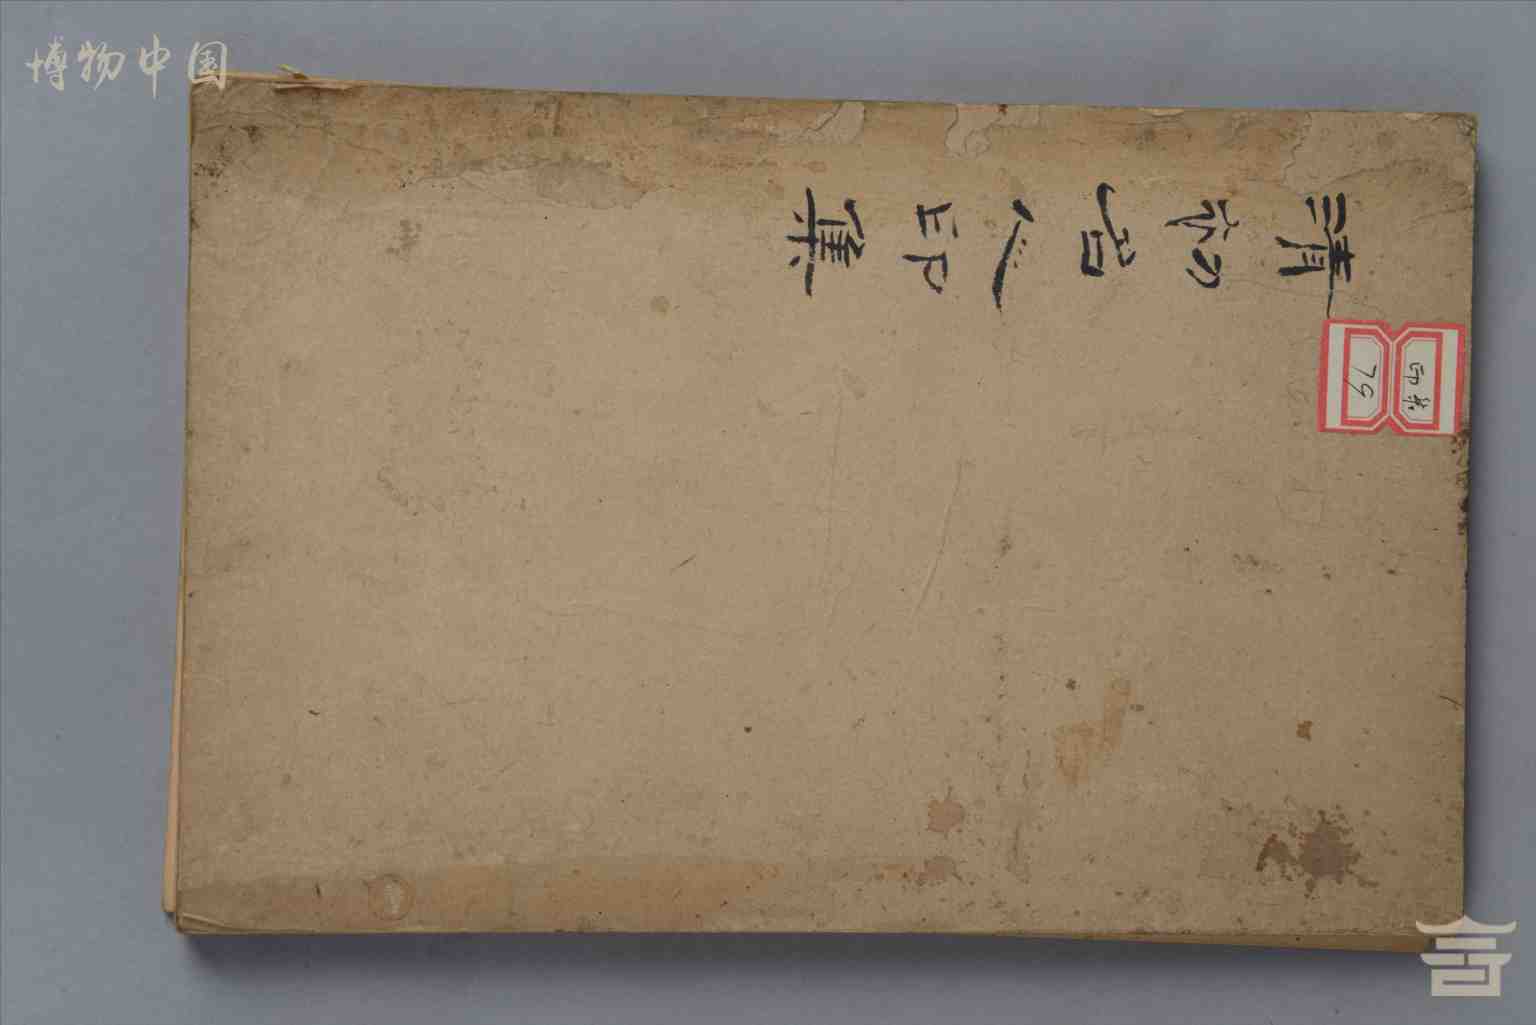 博物中国
清初名人印集
印集
79